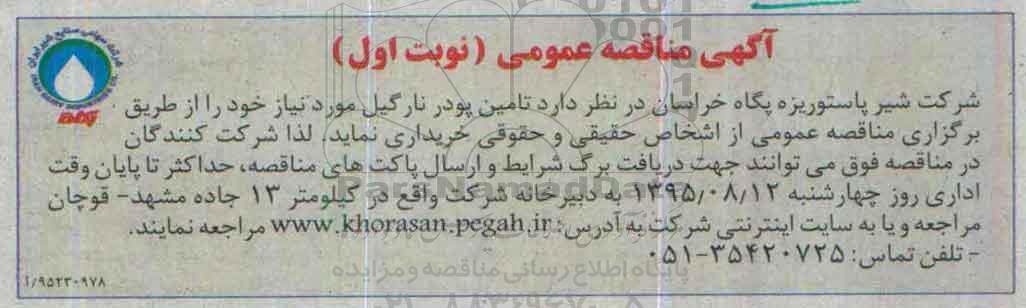 آگهی مناقصه عمومی (نوبت اول)
شرکت شیر پاستوریزه پگاه خراسان در نظر دارد تامین پودر نارگیل مورد نیاز خود را از طریق
برگزاری مناقصه عمومی از اشخاص حقیقی و حقوقی خریداری نماید. لذا شرکت کنندگان
در مناقصه فوق می توانند جهت دریافت برگ شرایط و ارسال پاکت های مناقصه، حداکثر تا پایان وقت
اداری روز چهارشنبه ۱۳۹۵/۰۸/۱۲ به دبیرخانه شرکت واقع در کیلومتر ۱۳ جاده مشهد- قوچان
مراجعه و یا به سایت اینترنتی شرکت به آدرس: www.khorasan.pegah.ir مراجعه نمایند.
- تلفن تماس: ۳۵۴۲۰۷۲۵-۰۵۱
پایگاه اطلاع رسانی مناقصه و مزایده
۹۵۲۳۰۹۷۸/آ
پگاه